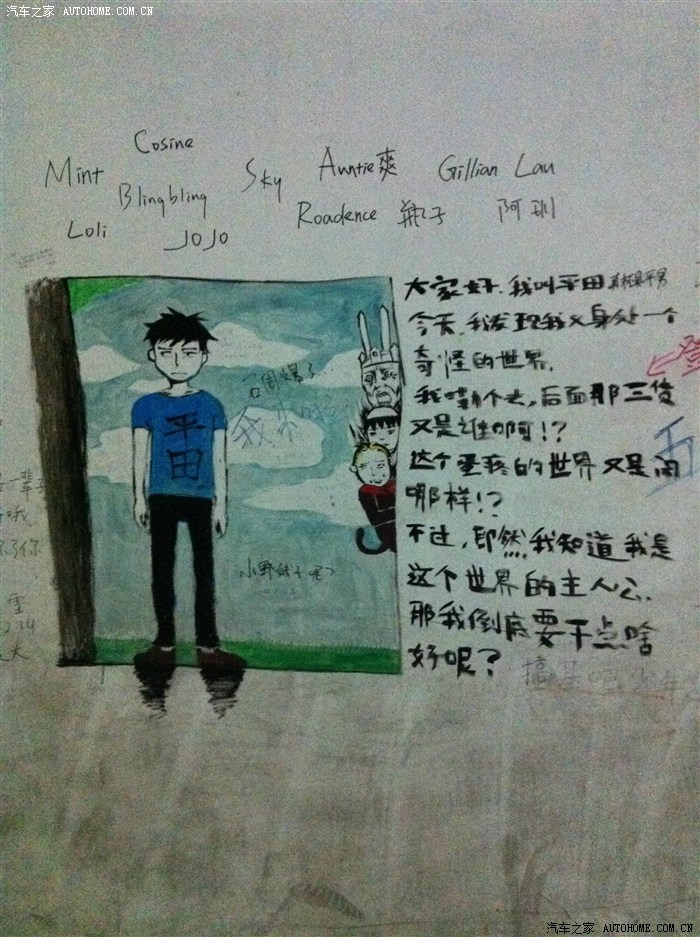 汽车之家 AUTOHOME.COM.CN
Cosine
Mint
Blingbling
Sky
Auntie爽
Gillian Lau
Loli
JOJO
Roadence
瓶子
阿驯
大家好.我叫平田
今天,我发现我又身处一个
奇怪的世界.
我嘞个去,后面那三货
又是谁啊!?
这个蛋疼的世界又是闹
哪样!?
不过,即然我知道我是
这个世界的主人公.
那我倒底要干点啥
好呢?
搞基吧,少年
平田
小野妹子呢?
汽车之家 AUTOHOME.COM.CN